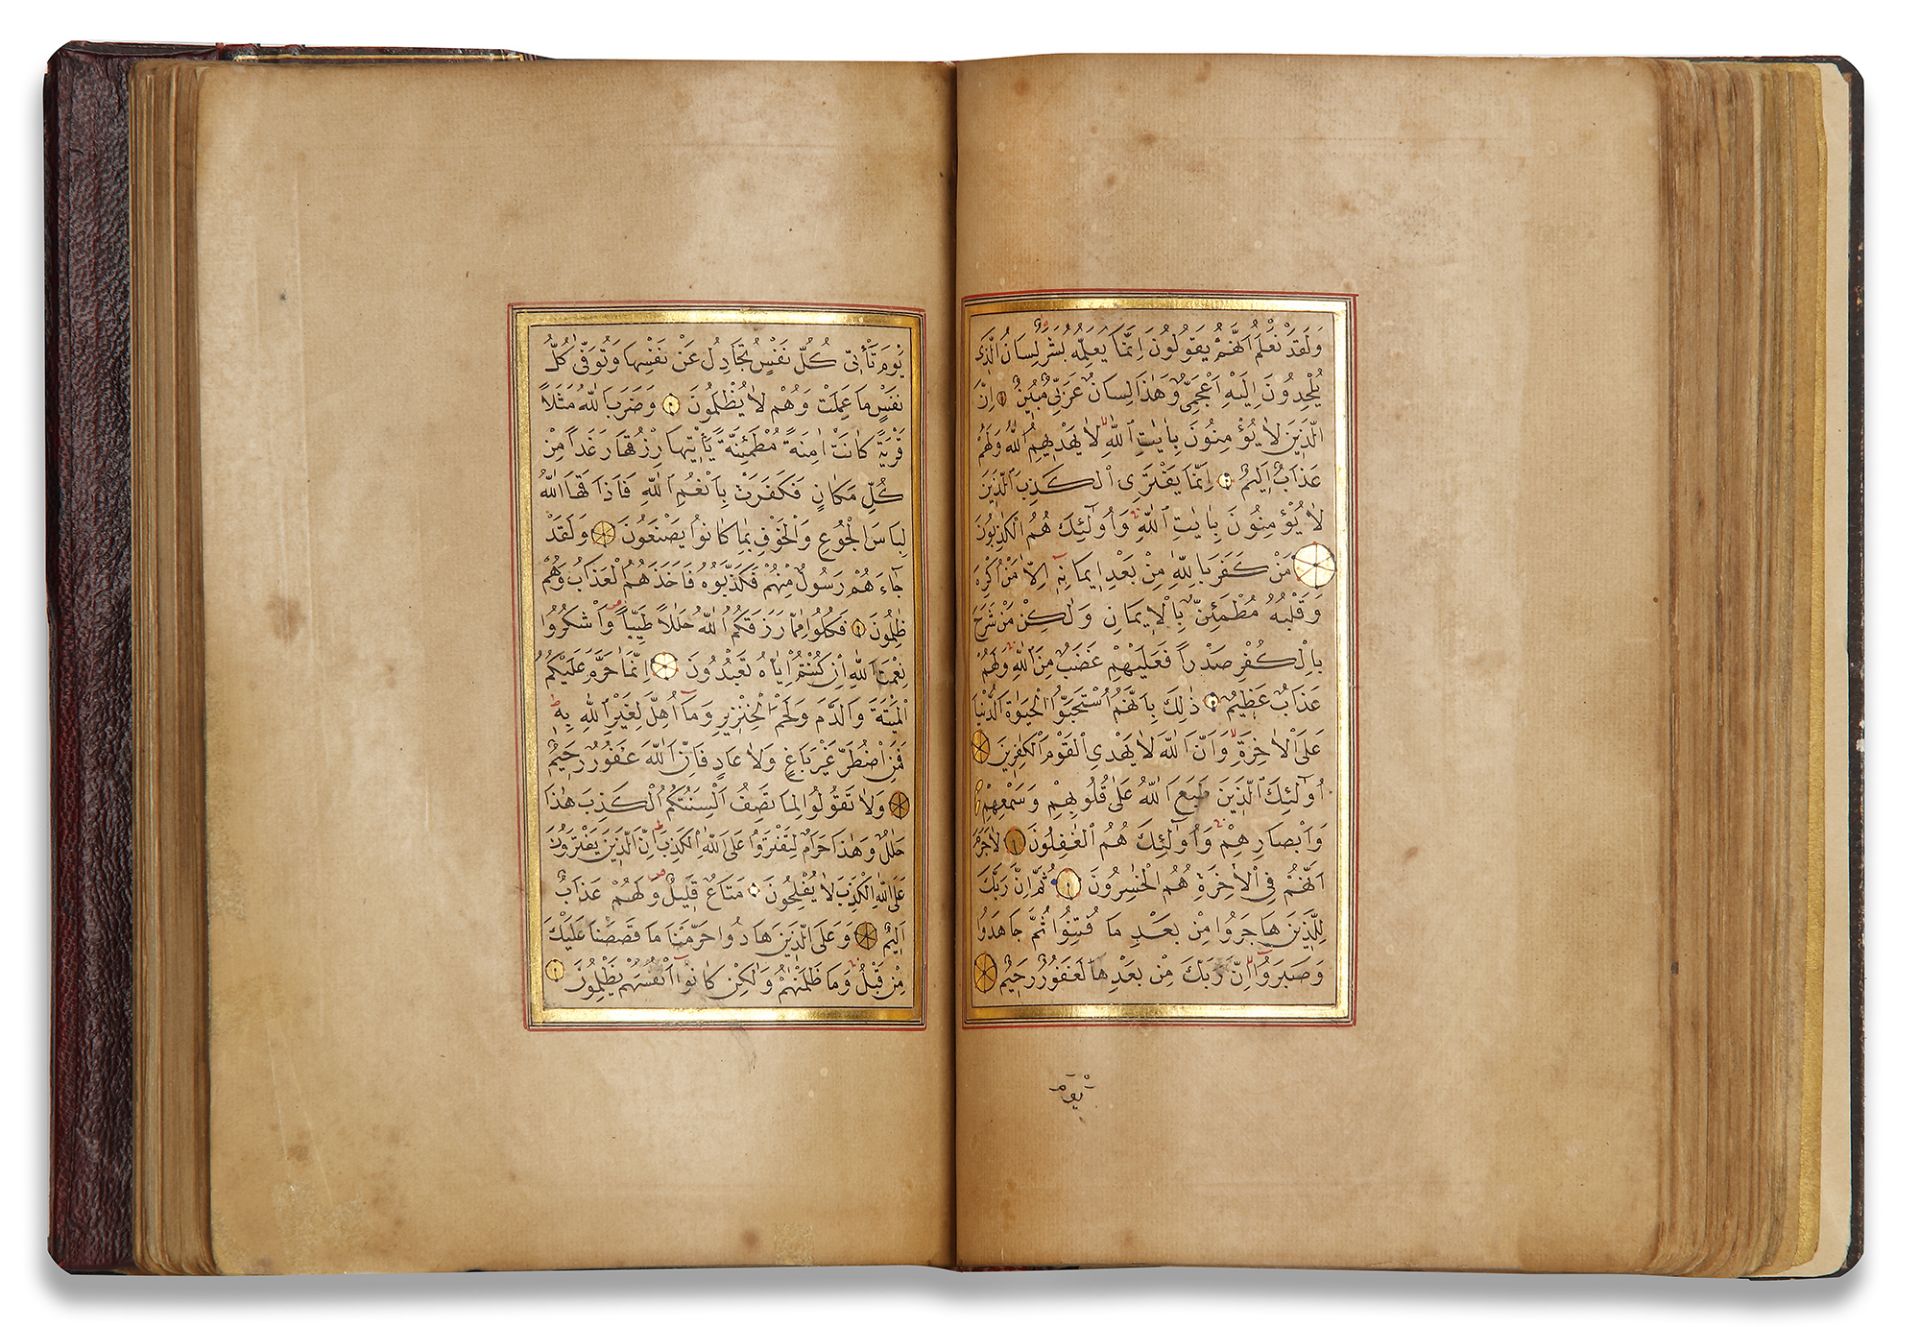 وَلَقَدْ نَعْلَمُ اَنَّهُمْ يَقُولُونَ اِنَّمَا يُعَلِّمُهُ بَشَرٌ لِسَانُ الَّذِى
يُلْحِدُونَ اِلَيْهِ اَعْجَمِىٌّ وَهٰذَا لِسَانٌ عَرَبِىٌّ مُبِينٌ اِنَّ
الَّذِينَ لَا يُؤْمِنُونَ بِاٰيَاتِ اللّٰهِ لَا يَهْدِيهِمُ اللّٰهُ وَلَهُمْ
عَذَابٌ اَلِيمٌ اِنَّمَا يَفْتَرِى الْكَذِبَ الَّذِينَ
لَا يُؤْمِنُونَ بِاٰيَاتِ اللّٰهِ وَاُولٰئِكَ هُمُ الْكَاذِبُونَ
مَنْ كَفَرَ بِاللّٰهِ مِنْ بَعْدِ اِيمَانِهِ اِلَّا مَنْ اُكْرِهَ
وَقَلْبُهُ مُطْمَئِنٌّ بِالْاِيمَانِ وَلٰكِنْ مَنْ شَرَحَ
بِالْكُفْرِ صَدْرًا فَعَلَيْهِمْ غَضَبٌ مِنَ اللّٰهِ وَلَهُمْ
عَذَابٌ عَظِيمٌ ذٰلِكَ بِاَنَّهُمُ اسْتَحَبُّوا الْحَيٰوةَ الدُّنْيَا
عَلَى الْاٰخِرَةِ وَاَنَّ اللّٰهَ لَا يَهْدِى الْقَوْمَ الْكَافِرِينَ
اُولٰئِكَ الَّذِينَ طَبَعَ اللّٰهُ عَلٰى قُلُوبِهِمْ وَسَمْعِهِمْ
وَاَبْصَارِهِمْ وَاُولٰئِكَ هُمُ الْغَافِلُونَ لَا جَرَمَ
اَنَّهُمْ فِى الْاٰخِرَةِ هُمُ الْخَاسِرُونَ ثُمَّ اِنَّ رَبَّكَ
لِلَّذِينَ هَاجَرُوا مِنْ بَعْدِ مَا فُتِنُوا ثُمَّ جَاهَدُوا
وَصَبَرُوا اِنَّ رَبَّكَ مِنْ بَعْدِهَا لَغَفُورٌ رَحِيمٌ
يَوْمَ
يَوْمَ تَأْتِى كُلُّ نَفْسٍ تُجَادِلُ عَنْ نَفْسِهَا وَتُوَفّٰى كُلُّ
نَفْسٍ مَا عَمِلَتْ وَهُمْ لَا يُظْلَمُونَ وَضَرَبَ اللّٰهُ مَثَلًا
قَرْيَةً كَانَتْ اٰمِنَةً مُطْمَئِنَّةً يَأْتِيهَا رِزْقُهَا رَغَدًا مِنْ
كُلِّ مَكَانٍ فَكَفَرَتْ بِاَنْعُمِ اللّٰهِ فَاَذَاقَهَا اللّٰهُ
لِبَاسَ الْجُوعِ وَالْخَوْفِ بِمَا كَانُوا يَصْنَعُونَ وَلَقَدْ
جَاءَهُمْ رَسُولٌ مِنْهُمْ فَكَذَّبُوهُ فَاَخَذَهُمُ الْعَذَابُ وَهُمْ
ظَالِمُونَ فَكُلُوا مِمَّا رَزَقَكُمُ اللّٰهُ حَلَالًا طَيِّبًا وَاشْكُرُوا
نِعْمَتَ اللّٰهِ اِنْ كُنْتُمْ اِيَّاهُ تَعْبُدُونَ اِنَّمَا حَرَّمَ عَلَيْكُمُ
الْمَيْتَةَ وَالدَّمَ وَلَحْمَ الْخِنْزِيرِ وَمَا اُهِلَّ لِغَيْرِ اللّٰهِ بِهِ
فَمَنِ اضْطُرَّ غَيْرَ بَاغٍ وَلَا عَادٍ فَاِنَّ اللّٰهَ غَفُورٌ رَحِيمٌ
وَلَا تَقُولُوا لِمَا تَصِفُ اَلْسِنَتُكُمُ الْكَذِبَ هٰذَا
حَلَالٌ وَهٰذَا حَرَامٌ لِتَفْتَرُوا عَلَى اللّٰهِ الْكَذِبَ اِنَّ الَّذِينَ يَفْتَرُونَ
عَلَى اللّٰهِ الْكَذِبَ لَا يُفْلِحُونَ مَتَاعٌ قَلِيلٌ وَلَهُمْ عَذَابٌ
اَلِيمٌ وَعَلَى الَّذِينَ هَادُوا حَرَّمْنَا مَا قَصَصْنَا عَلَيْكَ
مِنْ قَبْلُ وَمَا ظَلَمْنَاهُمْ وَلٰكِنْ كَانُوا اَنْفُسَهُمْ يَظْلِمُونَ